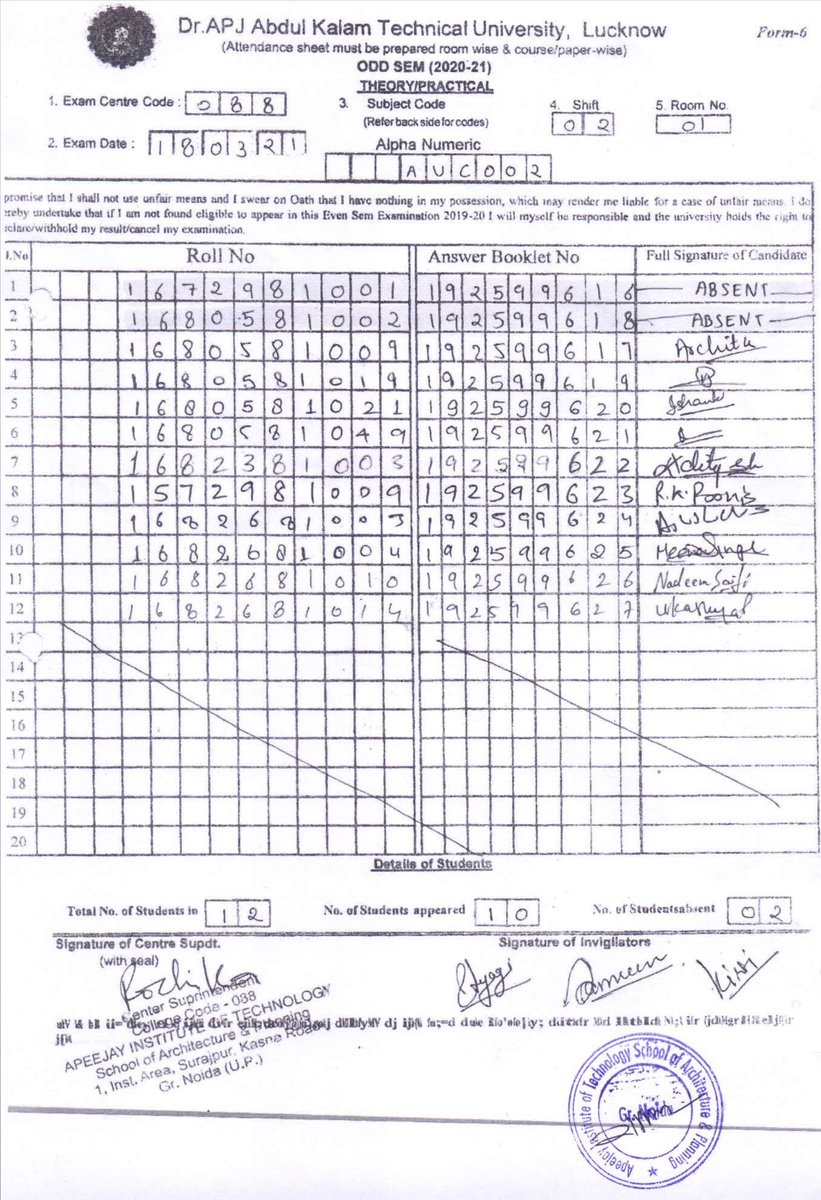 Dr.APJ Abdul Kalam Technical University, Lucknow
Form-6
(Attendance sheet must be prepared room wise & course/paper-wise)
ODD SEM (2020-21)
THEORY/PRACTICAL
1. Exam Centre Code : 088
3. Subject Code
4. Shift
5. Room No.
(Refer back side for codes)
02
01
2. Exam Date : 180321
Alpha Numeric
AUC002
promise that I shall not use unfair means and I swear on Oath that I have nothing in my possession, which may render me liable for a case of unfair means. I do
ereby undertake that if I am not found eligible to appear in this Even Sem Examination 2019-20 I will myself be responsible and the university holds the right to
eclare/withhold my result/cancel my examination.
l.No Roll No Answer Booklet No Full Signature of Candidate
1 1672981001 192599616 ABSENT
2 1680581002 192599618 ABSENT
3 1680581009 192599617 Archita
4 1680581019 192599619
5 1680581021 192599620
6 1680581049 192599621
7 1682381003 192599622
8 1572981009 192599623 R.K.
9 1682681003 192599624
10 1682681004 192599625
11 1682681010 192599626 Nadeem Saifi
12 1682681014 192599627
13
14
15
16
17
18
19
20
Details of Students
Total No. of Students in 12 No. of Students appeared 10 No. of Students absent 02
Signature of Centre Supdt. Signature of Invigilators
(with seal)
Tyagi Kirti
Center Suprintendent
College Code - 088
APEEJAY INSTITUTE OF TECHNOLOGY
School of Architecture & Planning
1, Inst. Area, Surajpur, Kasna Road
Gr. Noida (U.P.)
Apeejay Institute of Technology School of Architecture & Planning
Gr. Noida